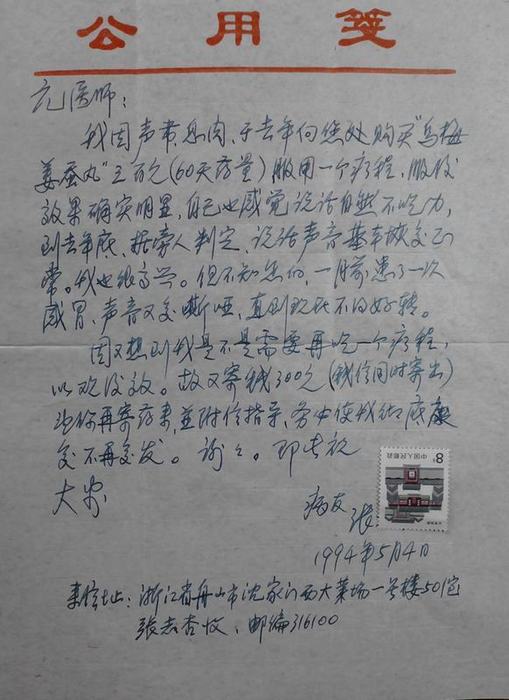 公用笺
元医师：
我因声带息肉，于去年向您处购买"乌梅
姜蚕丸"三百元(60天药量)服用一个疗程，服后
效果确实明显，自己也感觉说话自然不吃力，
到去年底，据旁人判定，说话声音基本恢复正
常。我也很高兴。但不知怎的，一月前患了一次
感冒，声音又变嘶哑，直到现在不的好转。
因又想到我是不是需要再吃一个疗程，
以观后效。故又寄钱300元(我信同时寄出)
请你再寄药来，并附信指导，务必使我彻底康
复不再复发。谢々。即此祝
大安
病友 张
1994年5月4日
来信地址：浙江省舟山市沈家门西大菜场一号楼501室
张志杏收、邮编316100
中国人民邮政
8分